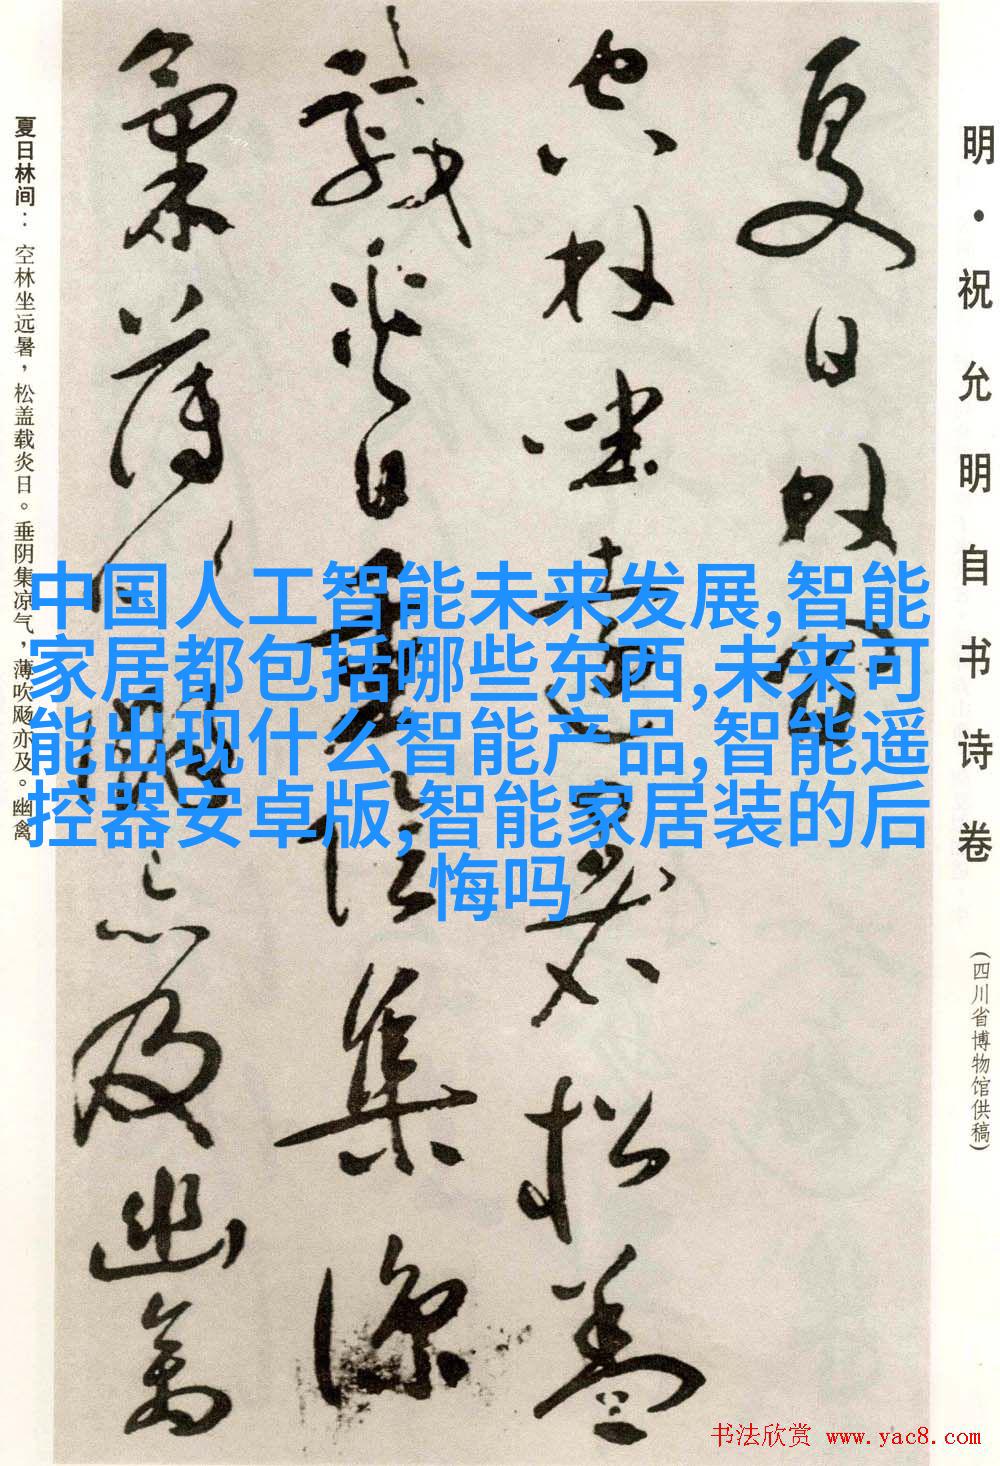 明·祝允明自书诗卷
(四川省博物馆供稿)
夏日林间
空林坐远暑松盖
载炎日垂阴集凉
气薄吹飏亦及幽禽
夏日林间：空林坐远暑，松盖载炎日。垂阴集凉气，薄吹飏亦及。幽禽
中国人工智能未来发展,智能
家居都包括哪些东西,未来可
能出现什么智能产品,智能遥
控器安卓版,智能家居装的后
悔吗
书法欣赏 www.yac8.com